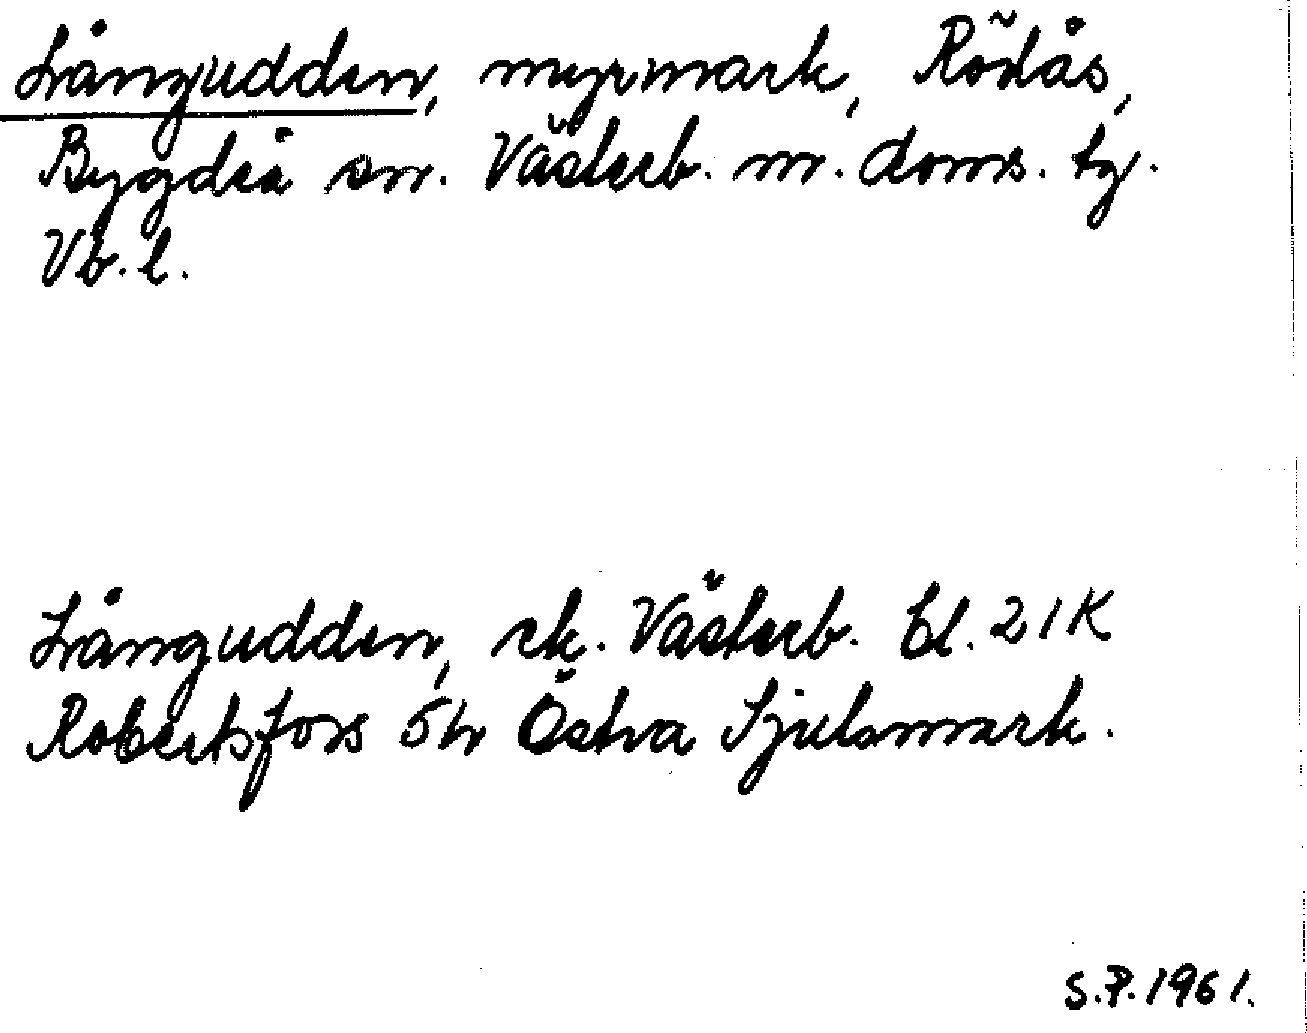 Långudden, myrmark, Rödås,
Bygdeå sn. Västerb. m. doms. tg.
Vb. l.
Långudden, ek. Västerb. bl. 21K
Robertsfors 5h Östra Sjulsmark.
S.P. 1961.